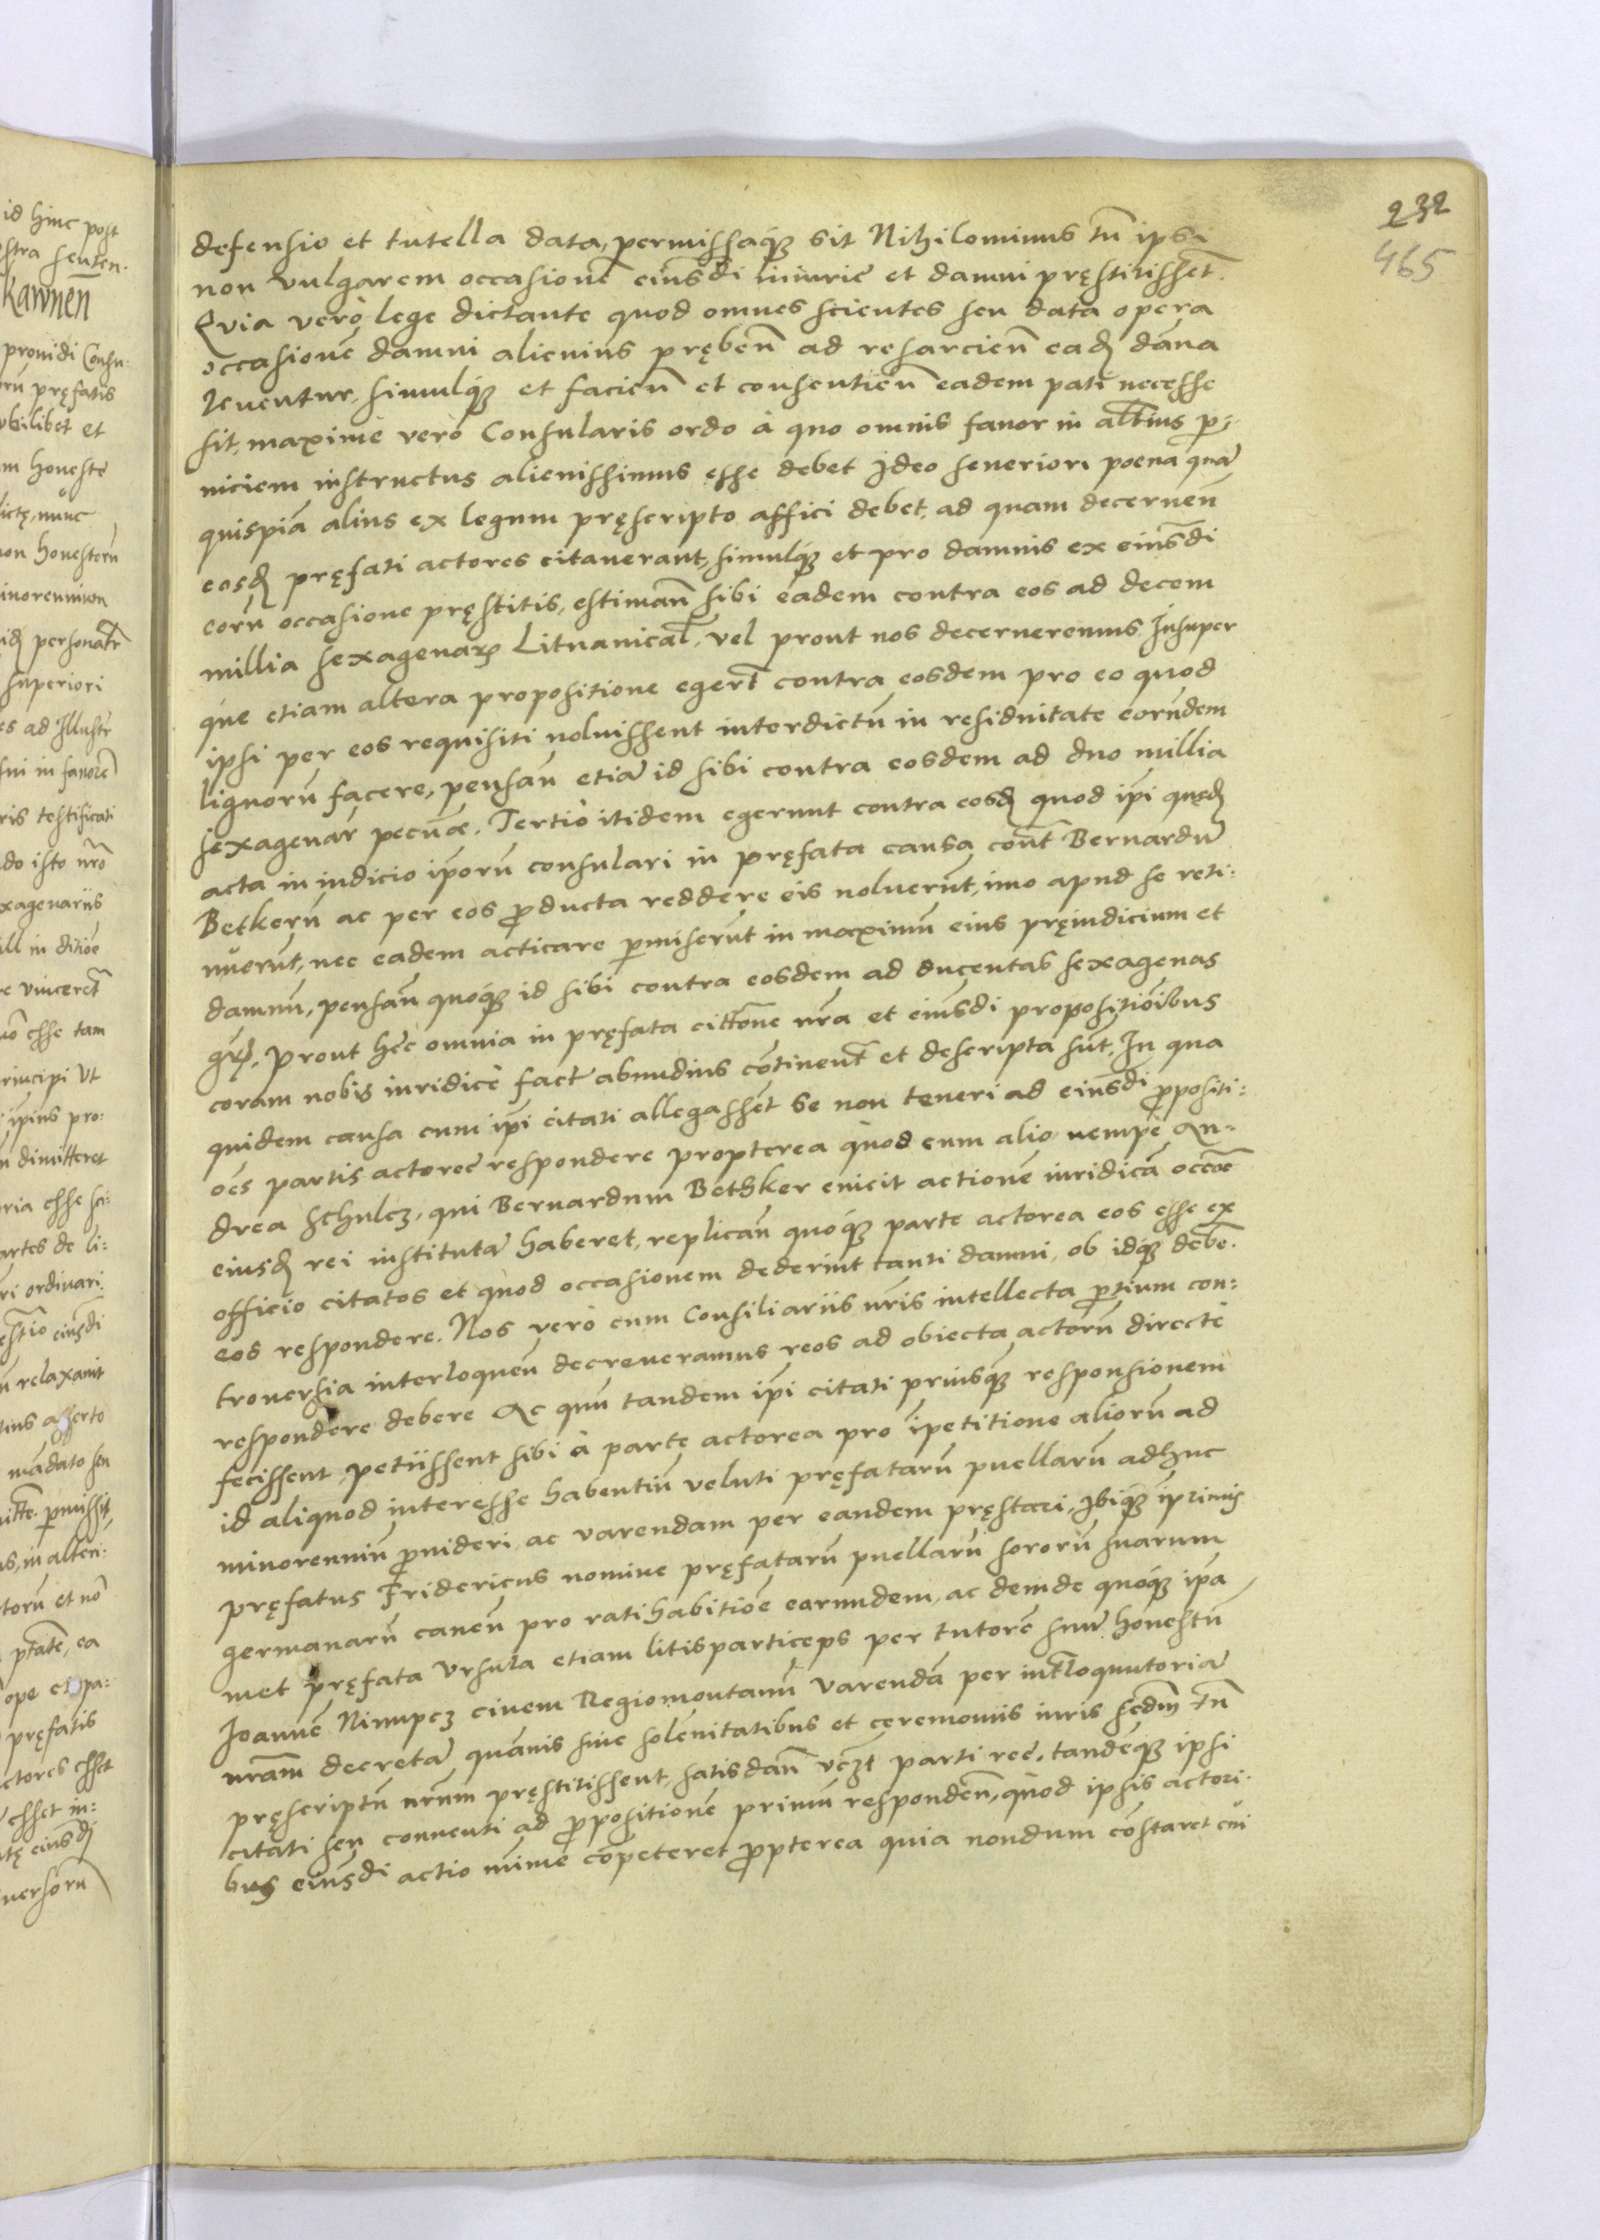 232
465
defensio et tutella data, permissaq sit Nihilominus tn̄ ipsi
non vulgarem occasionē eiusdi iniurie et damni pręstitissēt.
Qvia verò lege dictante quod omnes scientes seu data opera
occasionē damni alienius pręben̄ ad resarcien̄ eaḋ dāna
teneantur, simulq et facien̄ et consentien̄ eadem pati necesse
sit, maximè vero Consularis ordo à quo omnis fauor in altius p̄-
niciem instructus alienissimus esse debet Ideo seueriori poena quā
quispiā alius ex legum pręscripto affici debet, ad quam decernen̄
eosḋ pręfati actores citauerant, simulq et pro damnis ex eiusdi
eorū occasione pręstitis, estiman̄ sibi eadem contra eos ad decem
millia sexagenarꝝ Lituanical̄, vel prout nos decerneremus Insuper
que etiam altera propositione egerūt contra eosdem pro eo quod
ipsi per eos requisiti noluissent interdictū in residuitate eorūdem
lignorū facere, pensan̄ etiā id sibi contra eosdem ad duo millia
sexagenar̄ pecun̄æ. Tertiò itidem egerunt contra eosḋ quod ip̄i quędḋ
acta in iudicio ip̄orū consulari in pręfata causa cont̄ Bernardū
Betkerū ac per eos p̄ducta reddere eis noluerūt, imo apud se reti:
nuerūt, nec eadem acticare p̄miserūt in maximū eius pręiudicium et
damnū, pensan̄ quoq id sibi contra eosdem ad ducentas sexagenas
gr̄ꝝ. Prout hęc omnia in pręfata cittōne nr̄a et eiusdi propositiōibus
coram nobis iuridicè fact̄ abundius cōtinent̄ et descripta sūt. In qua
quidem causa cum ip̄i citati allegassēt se non teneri ad eiusdi p̄positi:
oēs partis actoreę respondere propterea quod cum alio nempe An-
drea Schulcz, qui Bernardum Bethker euicit actionē iuridicā occōe
eiusḋ rei institutā haberet, replican̄ quoq parte actorea eos esse ex
officio citatos et quod occasionem dederint tanti damni, ob idq debē.
eos respondere. Nos verò cum Consiliariis nr̄is intellecta p̄tium con:
trouersia interloquen̄ decreueramus reos ad obiecta actorū directè
respondere debere Ac quū tandem ip̄i citati priusq responsionem
fecissent, petiissent sibi à parte actorea pro īpetitione aliorū ad
id aliquod interesse habentiū veluti pręfatarū puellarū adhuc
minorenniū p̄uideri, ac varendam per eandem pręstari, Ibiq īprimis
pręfatus Fridericus nomine pręfatarū puellarū sororū suarum
germanarū cauen̄ pro ratihabitiōe earundem, ac deinde quoq ip̄a
met pręfata Vrsula etiam litis particeps per tutorē suū honestū
Joannē Nimpcz ciuem Regiomontanū varendā per int̄loquutoriā
nr̄am decretā quāuis siue solēnitatibus et ceremoniis iuris scdm̄ tn̄
pręscriptū nr̄um pręstitissent, satisdan̄ vczt parti reę, tandēq ipsi
citati seu conuenti ad p̄positionē primū responden̄, quod ipsis actori-
bus eiusdi actio minimè cōpeteret p̄pterea quia nondum cōstaret cui